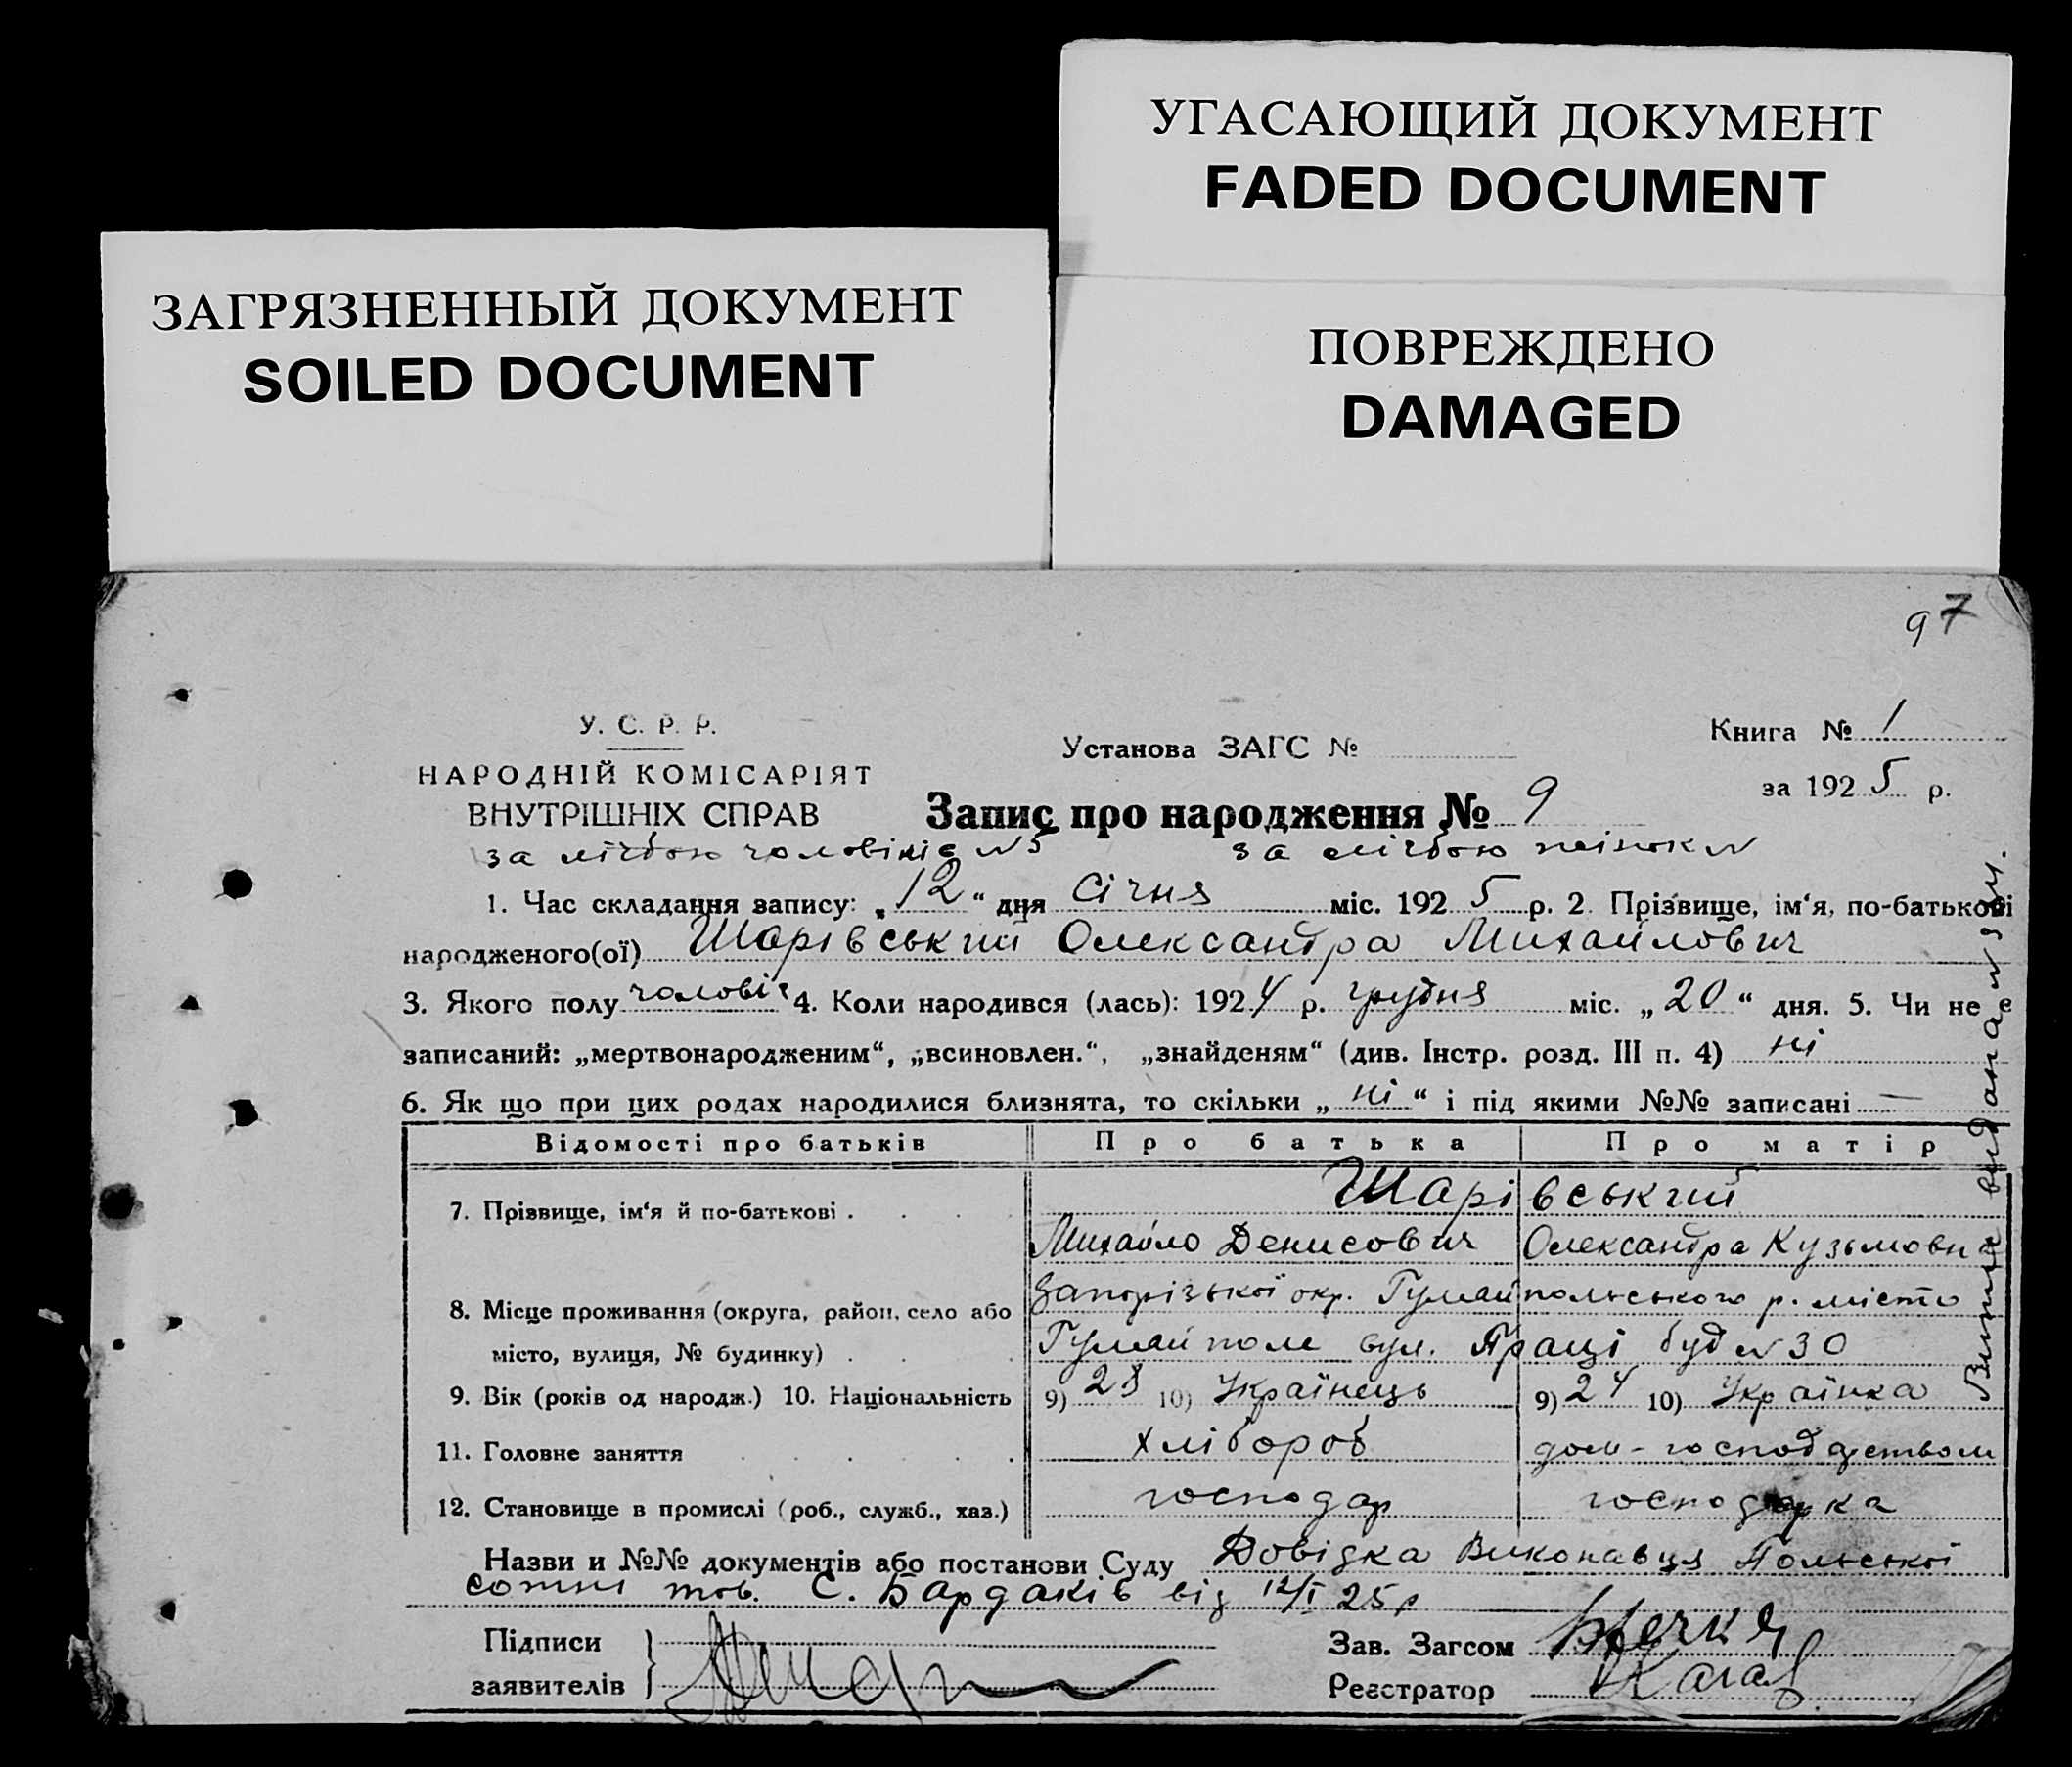 УГАСАЮЩИЙ ДОКУМЕНТ
FADED DOCUMENT
ЗАГРЯЗНЕННЫЙ ДОКУМЕНТ
SOILED DOCUMENT
ПОВРЕЖДЕНО
DAMAGED
97
У. С. Р. Р.
НАРОДНІЙ КОМІСАРІЯТ
ВНУТРІШНІХ СПРАВ
Установа ЗАГС №
Книга № 1
за 1925 р.
Запис про народження № 9
за лічбою чоловіків № 5 за лічбою жінок №
1. Час складання запису: „12“ дня Січня міс. 1925 р. 2. Прізвище, ім‘я, по-батькові
народженого(ої) Шарівський Олександра Михайлович
3. Якого полу чоловіч 4. Коли народився (лась): 1924 р. грудня міс. „20“ дня. 5. Чи не є
записаний: „мертвонародженим“, „всиновлен.“, „знайденям“ (див. Інстр. розд. III п. 4) ні
6. Як що при цих родах народилися близнята, то скільки „ні“ і під якими №№ записані —
Відомості про батьків Про батька Про матір
7. Прізвище, ім‘я й по-батькові . Шарівський
Михайло Денисович Олександра Кузьмовна
8. Місце проживання (округа, район, село або Запорізької окр. Гуляйпольського р. місто
місто, вулиця, № будинку) . Гуляйполе вул. Праці буд № 30
9. Вік (років од народж.) 10. Національність 9) 28 10) Українець 9) 24 10) Українка
11. Головне заняття хлібороб дом-господарством
12. Становище в промислі (роб., служб., хаз.) господар господарка
Назви и №№ документів або постанови Суду Довідка Виконавця Польської
сотні тов. С. Бардаків від 12/I 25 р
Підписи
заявителів
Зав. Загсом
Реєстратор
Витяг видана №